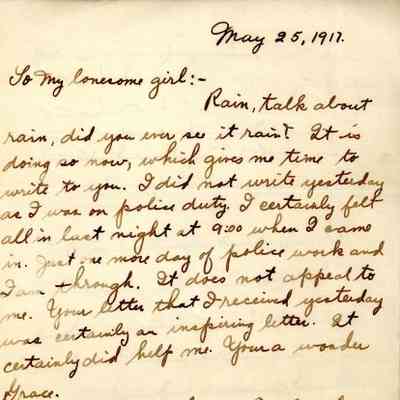 May 25, 1917.
To my lonesome girl:-
Rain, talk about
rain, did you ever see it rain? It is
doing so now, which gives me time to
write to you. I did not write yesterday
as I was on police duty. I certainly felt
all in last night at 9:00 when I came
in. Just one more day of police work and
I am through. It does not appeal to
me. Your letter that I received yesterday
was certainly an inspiring letter. It
certainly did help me. Your a wonder
Grace.